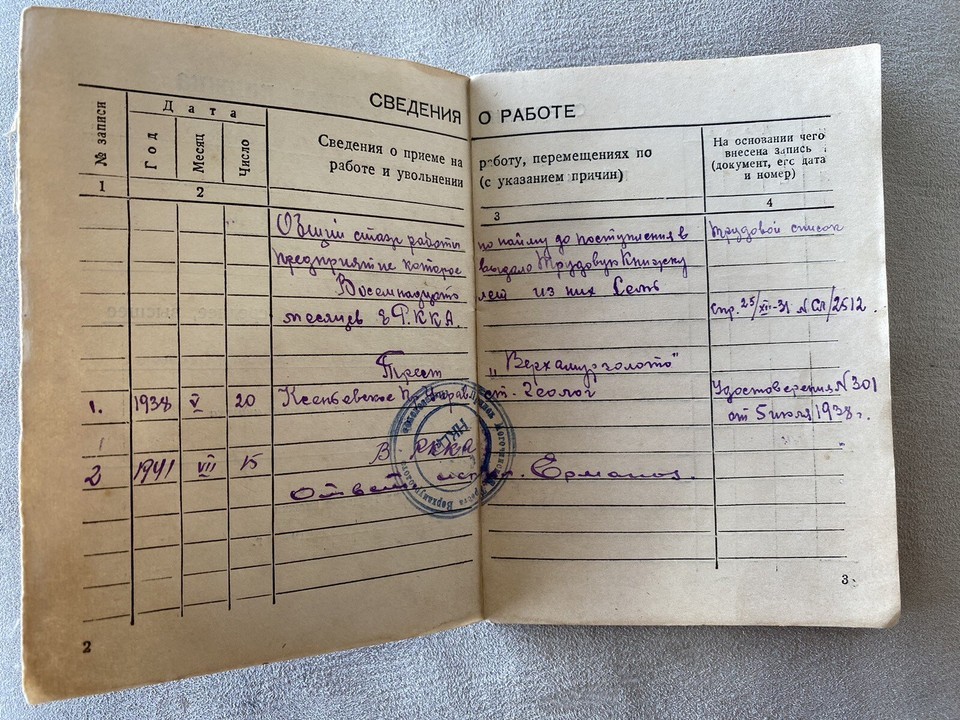 СВЕДЕНИЯ О РАБОТЕ
№ записи
Дата
Год
Месяц
Число
Сведения о приеме на работу, перемещениях по
работе и увольнении (с указанием причин)
На основании чего
внесена запись
(документ, его дата
и номер)
1
2
3
4
Общий стаж работы по найму до поступления в
Трудовой список
предприятие которое выдало Трудовую Книжку
Восемнадцать лет из них Семь
месяцев в Р.К.К.А.
стр. 25/XII-31 № СЛ/2512.
Трест "Верхамурзолото"
1. 1938 V 20 Ксеньевское П. Управ ст. геолог
Удостоверения № 301
от 5 июля 1938 г.
2 1941 VII 15 В РККА
Ответ. Ермаков.
НКЦМ
2
3